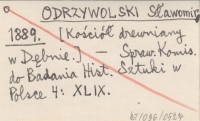 ODRZYWOLSKI Sławomir
1889. [Kościół drewniany
w Dębnie.] — Spraw. Komis.
do Badania Hist. Sztuki w
Polsce 4: XLIX.